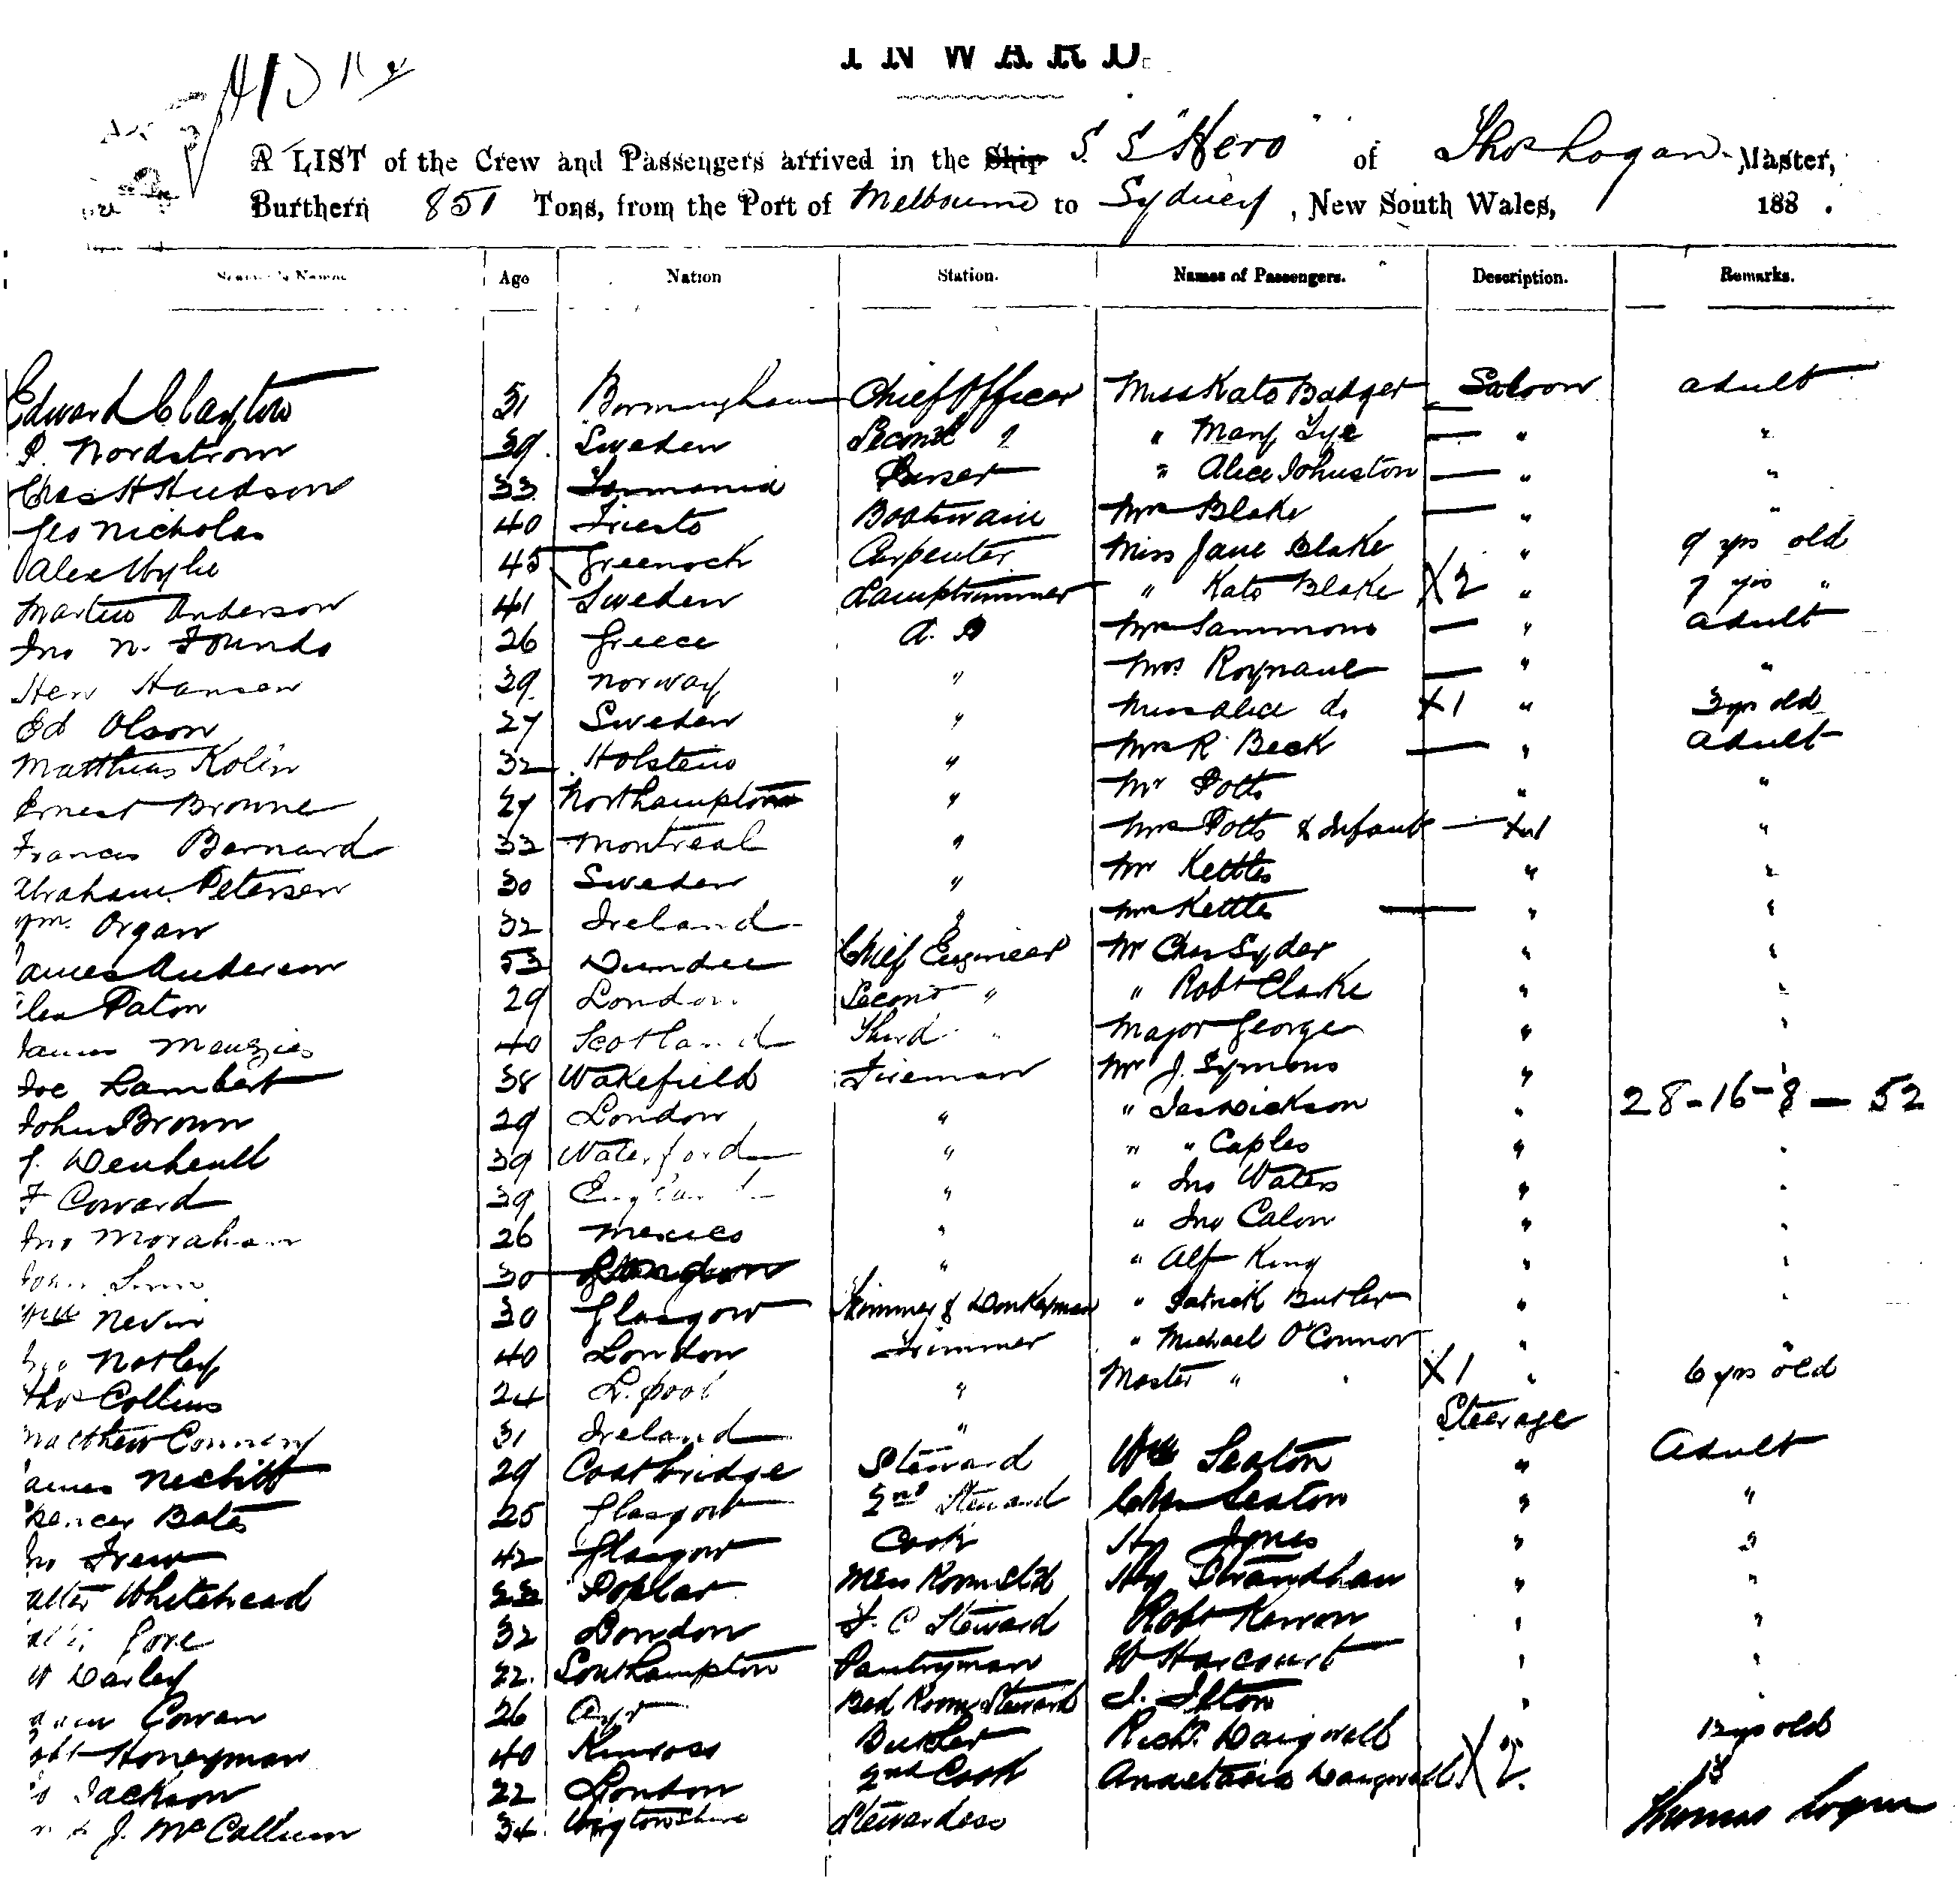 INWARD.
A LIST of the Crew and Passengers arrived in the Ship S. S "Hero" of Thos Logan Master,
Burthern 851 Tons, from the Port of Melbourne to Sydney, New South Wales, 188 .
Names Age Nation Station. Names of Passengers. Description. Remarks.
Edward Clayton 31 Birmingham Chief Officer Miss Kate Badger Saloon adult
P. Nordstrom 39 Sweden Second " " Mary Tye — " "
Chas H Hudson 33 Tasmania Purser " Alice Johnston — " "
Geo Nicholas 40 Trieste Boatswain Mrs Blake — " "
Alex Wylie 45 Greenock Carpenter Miss Jane Blake " 9 yrs old
Martin Anderson 41 Sweden Lamptrimmer " Kate Blake X2 " 7 yrs "
Jno N. Founds 26 Greece A. B Mrs Sammons — " adult
Hen Hansen 39 Norway " Mrs — " "
Ed Olson 27 Sweden " Miss Alice do X1 " 3 yrs old
Matthias Kolin 32 Holstein " Mrs R Beck — " adult
Ernest Browne 27 Northampton " Mr Potts " "
Francis Bernard 33 Montreal " Mrs Potts & Infant — X1 "
Abraham Petersen 30 Sweden " Mr Kettles " "
Wm. Organ 32 Ireland " Mrs Kettles — " "
James Anderson 53 Dundee Chief Engineer Mr Chas Syder " "
Alex Paton 29 London Second " " Robt Clarke " "
James Menzies 40 Scotland Third " Major George " "
Joe Lambert 38 Wakefield Fireman Mr J. Symons " "
John Brown 29 London " " Jas Dickson " 28-16-8 — 52
J. 39 Waterford " " " Caples " "
F Coward 39 England " " Jno Waters " "
Jno Morahan 26 Mexico " " Jno Calon " "
John 30 London " " Alf King " "
Nevin 30 Glasgow Trimmer & Donkeyman " Patrick Butler " "
Geo Notley 40 London Trimmer " Michael O'Connor " "
Thos Collins 24 L. pool " Master " " X1 " 6 yrs old
Matthew Connery 31 Ireland " Steerage
James Nesbitt 29 Coatbridge Steward Wm Seaton " Adult
Spencer Bates 25 Glasgow 2nd Steward Chas Seaton " "
Jno Frew 42 Glasgow Cook Hy Jones " "
Walter Whitehead 23 Poplar Mess Room Std Hy " "
Walter Gore 32 London F. C Steward Robt " "
W Darley 22 Southampton Pantryman W Harcourt " "
Cowan 26 Ayr Bed Room Steward J. " "
Robt Honeyman 40 Kinross Butcher Richd. " 12 yrs old
Jackson 22 London 2nd Cook Anastasia X2 " 13
J. McCallum 34 Wigtownshire Stewardess
Thomas Logan